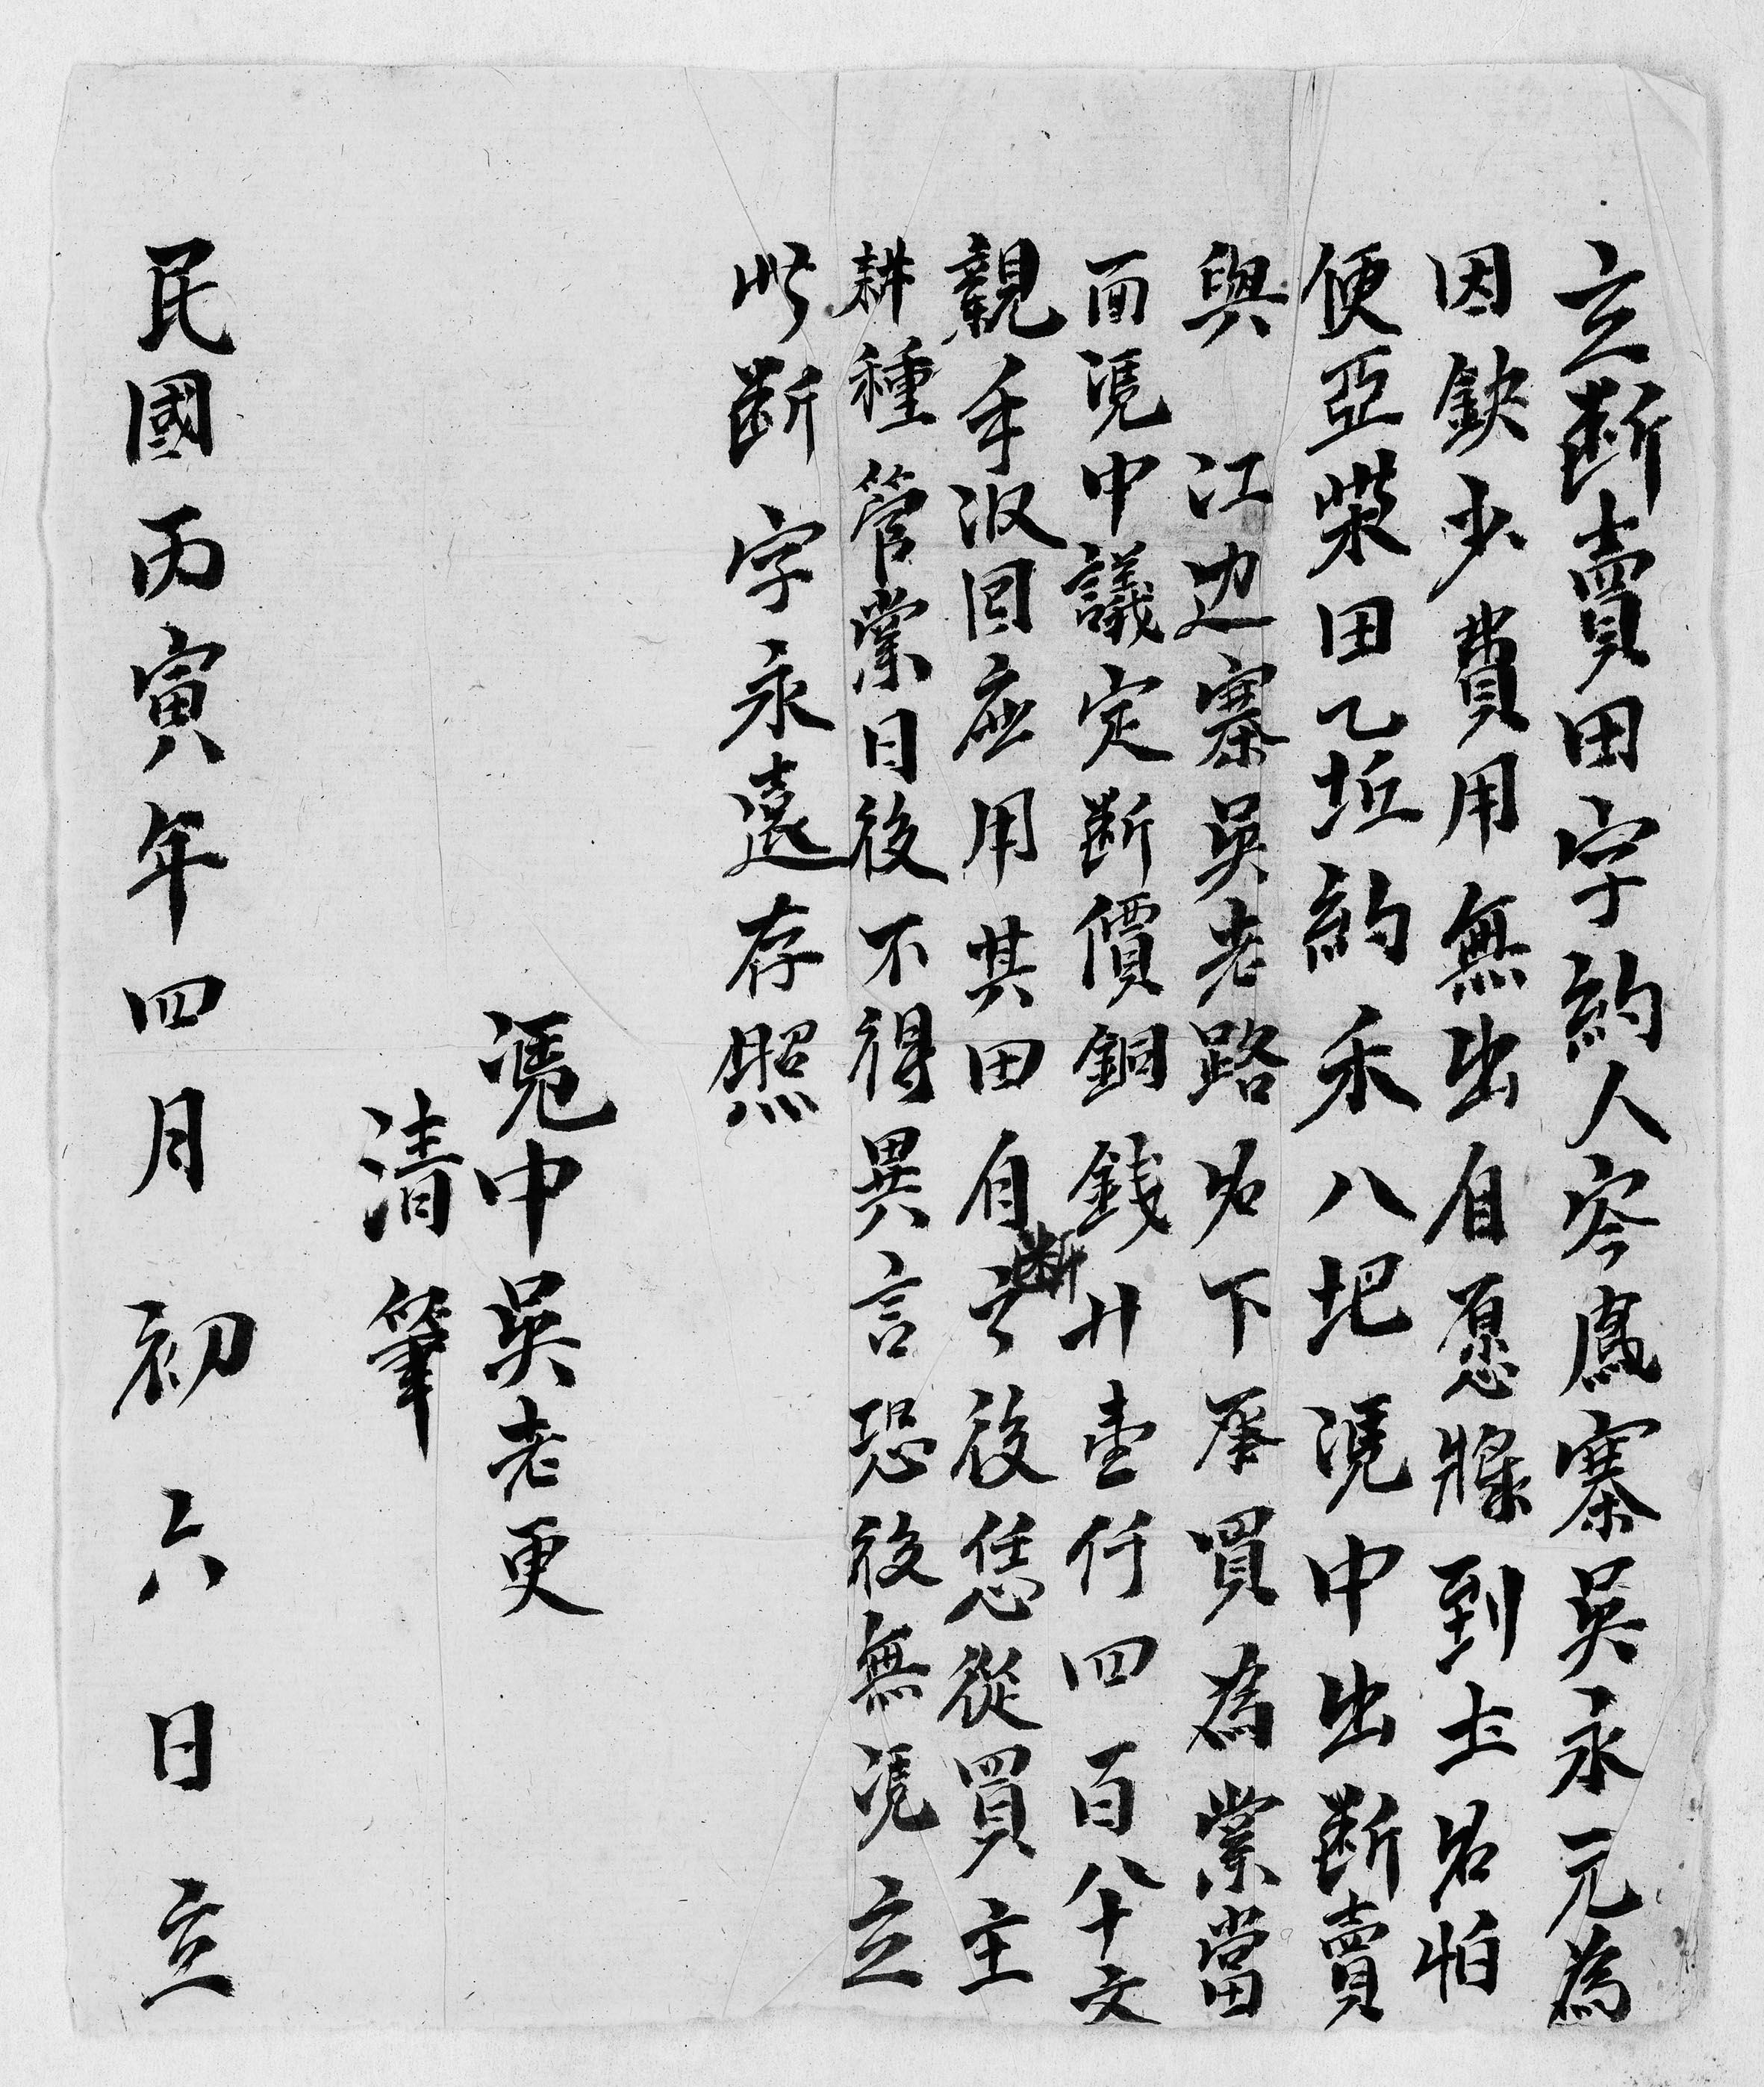 立斷賣田字約人岑鳳寨吳永元為
因缺少費用無出自愿將到土名怕
便亞柴田乙坵約禾八把凴中出斷賣
與江边寨吳老路名下承買為業當
面凴中議定斷價銅錢廾壹仟四百八十文
親手収囬應用其田自斷之後恁從買主
耕種管業日後不得異言恐後無凴立
此斷字永遠存照
凴中吳老更
清筆
民國丙寅年四月初六日立